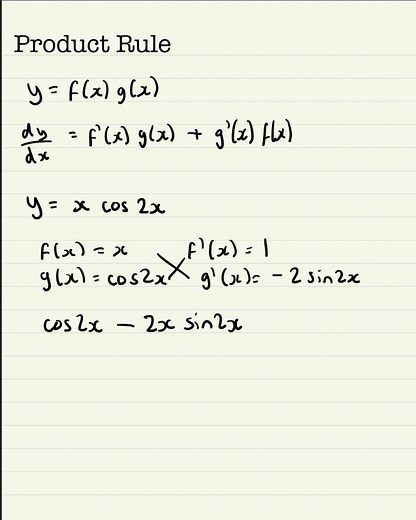 Product Rule
y = f(x) g(x)
dy/dx = f'(x) g(x) + g'(x) f(x)
y = x cos 2x
f(x) = x f'(x) = 1
g(x) = cos2x g'(x) = -2 sin2x
cos2x - 2x sin2x